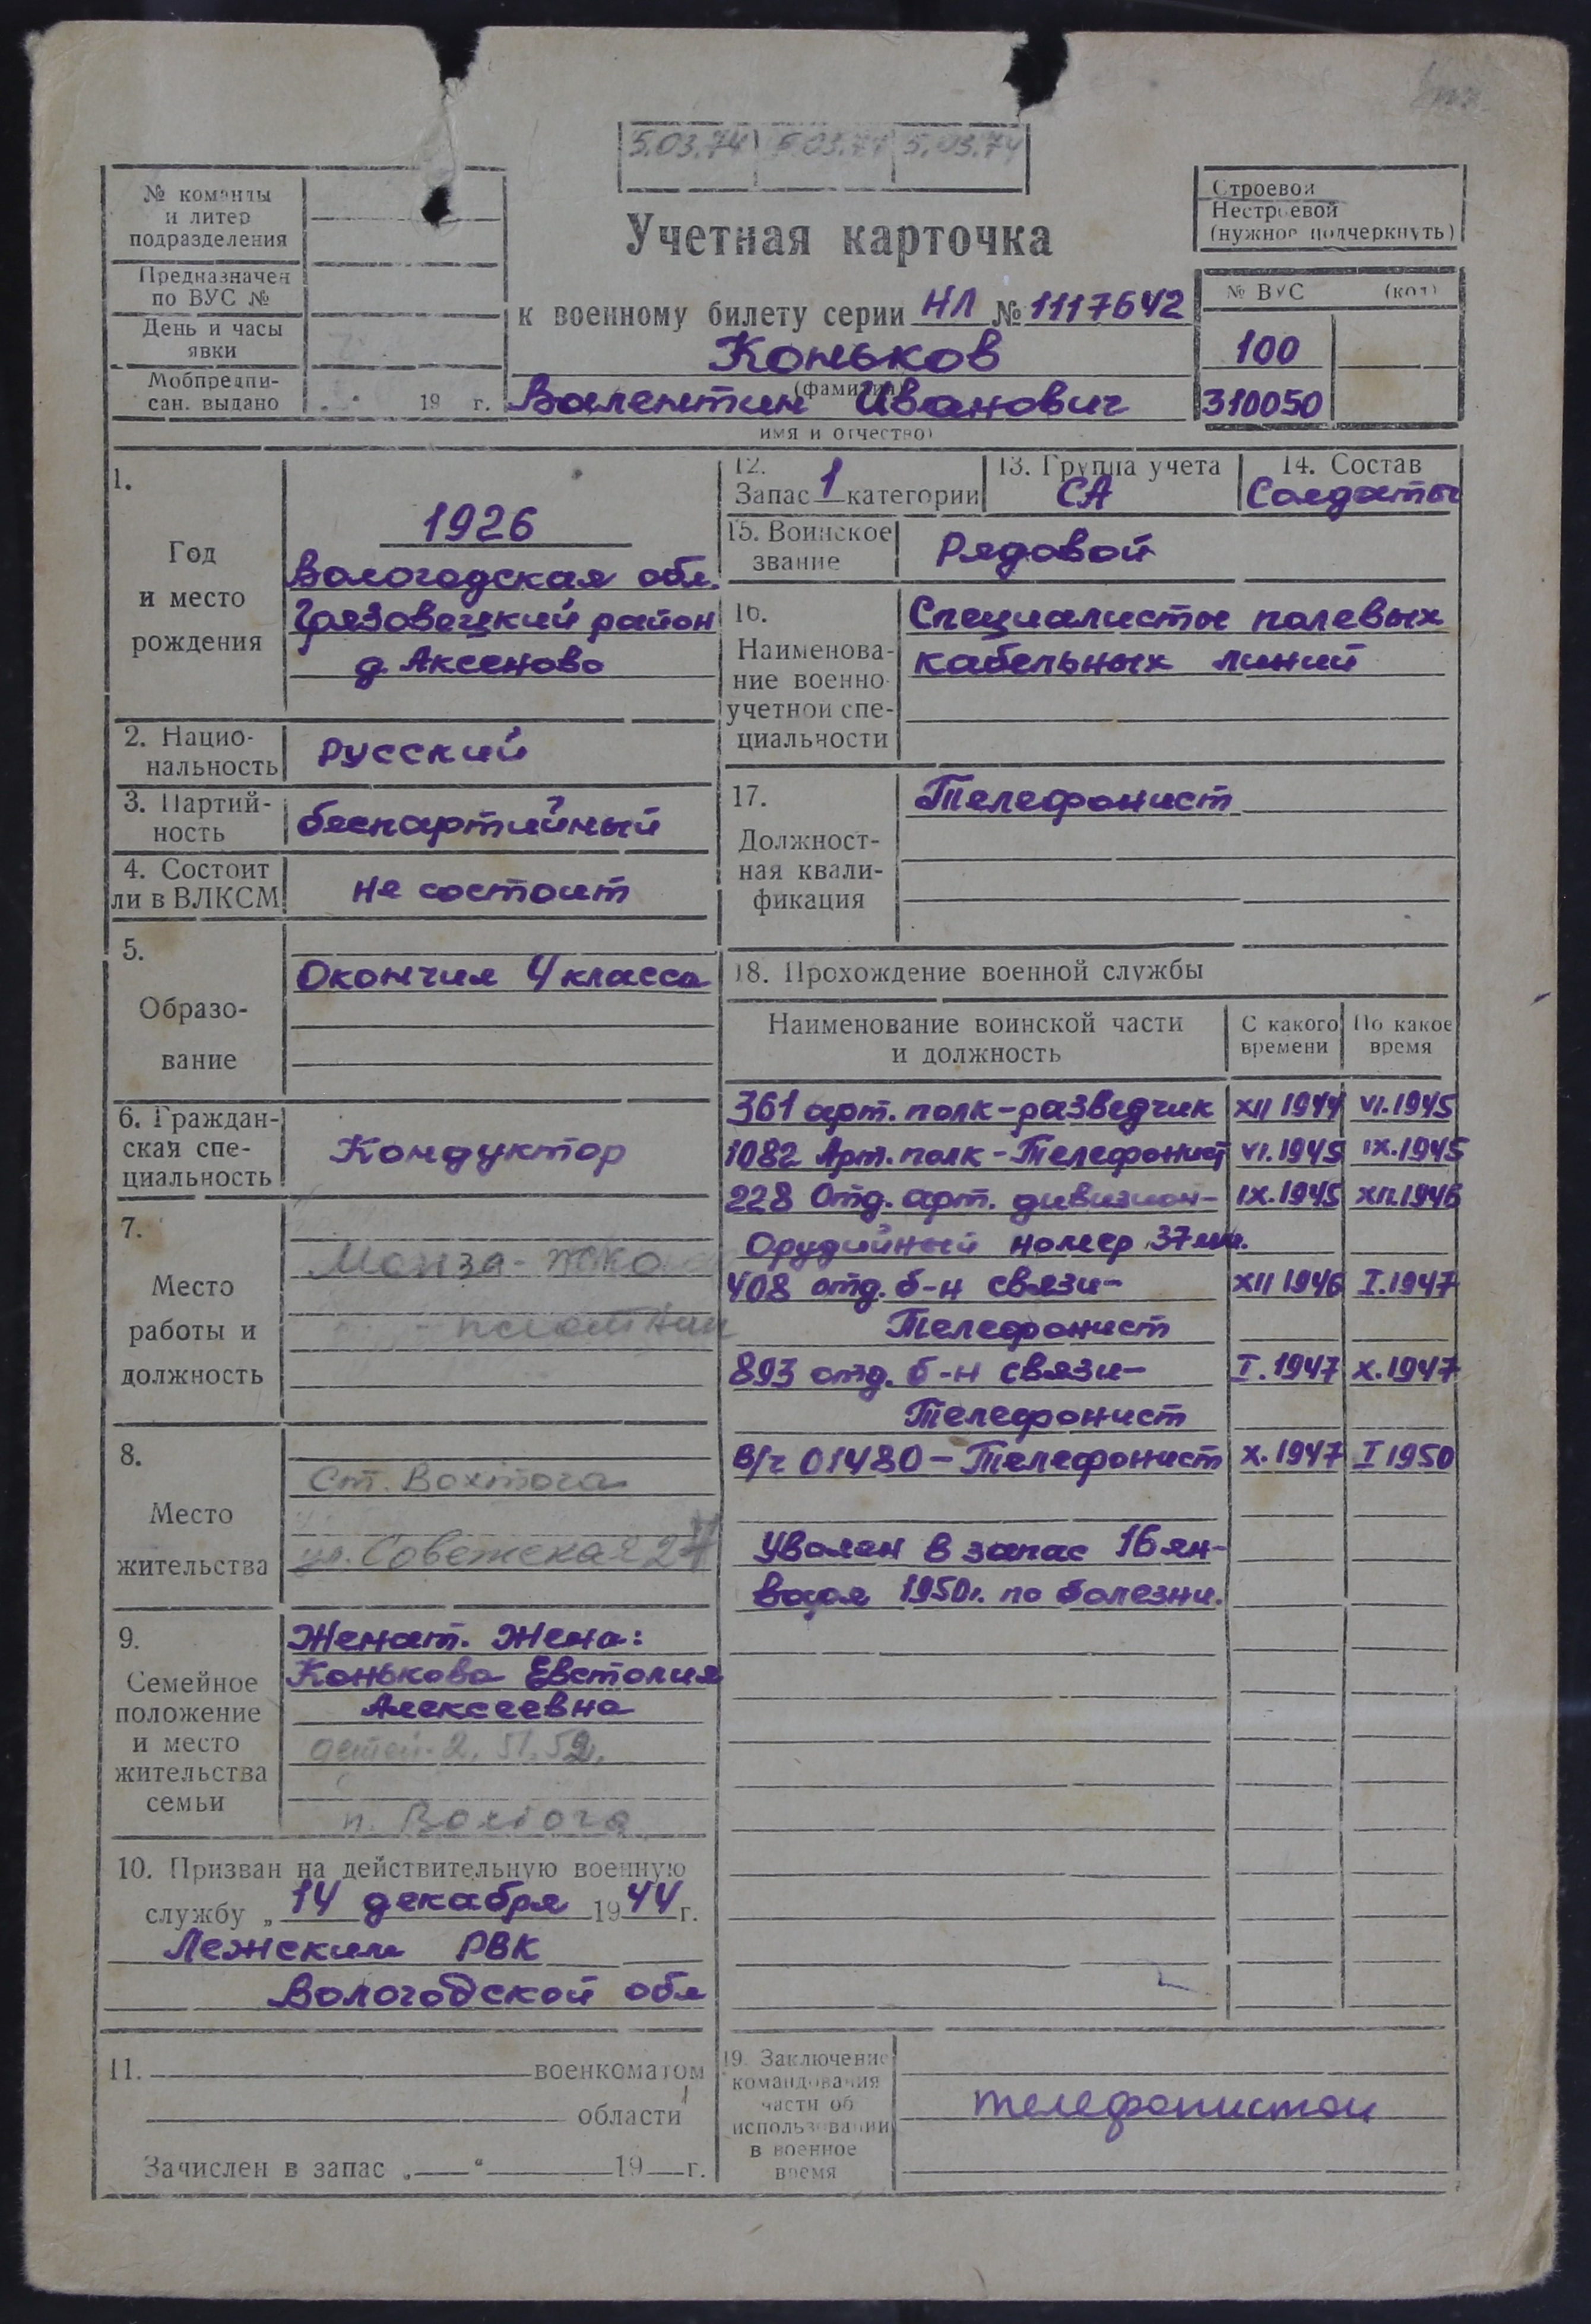 5.03.74 5.03.77 5.03.74
№ команды
и литер
подразделения
Предназначен
по ВУС №
День и часы
явки
Мобпредпи-
сан. выдано 19 г.
Учетная карточка
к военному билету серии НЛ № 1117642
Коньков
(фамилия)
Валентин Иванович
имя и отчество)
Строевой
Нестроевой
(нужное подчеркнуть)
№ ВУС (код)
100
310050
1.
Год
и место
рождения
1926
Вологодская обл.
Грязовецкий район
д. Аксеново
2. Нацио-
нальность
русский
3. Партий-
ность
беспартийный
4. Состоит
ли в ВЛКСМ
не состоит
5.
Образо-
вание
Окончил 4 класса
6. Граждан-
ская спе-
циальность
Кондуктор
7.
Место
работы и
должность
Монза-
8.
Место
жительства
Ст. Вохтога
ул. Советская 27
9.
Семейное
положение
и место
жительства
семьи
Женат. Жена:
Конькова Евстолия
Алексеевна
детей-2, 51, 52,
п. Вохтога
10. Призван на действительную военную
службу „ 14 декабря 1944 г.
Лежским РВК
Вологодской обл
11. военкоматом
области
Зачислен в запас „ “ 19 г.
12.
Запас 1 категории
13. Группа учета
СА
14. Состав
Солдаты
15. Воинское
звание
Рядовой
16.
Наименова-
ние военно
учетной спе-
циальности
Специалисты полевых
кабельных линий
17.
Должност-
ная квали-
фикация
Телефонист
18. Прохождение военной службы
Наименование воинской части
и должность
С какого
времени
По какое
время
361 арт. полк-разведчик XII 1944 VI.1945
1082 Арт. полк - Телефонист VI.1945 IX.1945
228 Отд. арт. дивизион- IX.1945 XII.1946
Орудийный номер 37мм.
408 отд. б-н связи- XII 1946 I.1947
Телефонист
893 отд. б-н связи- I.1947 X.1947
Телефонист
В/ч 01480 - Телефонист X.1947 I 1950
Уволен в запас 16 ян-
варя 1950г. по болезни.
19. Заключение
командования
части об
использовании
в военное
время
телефонистом